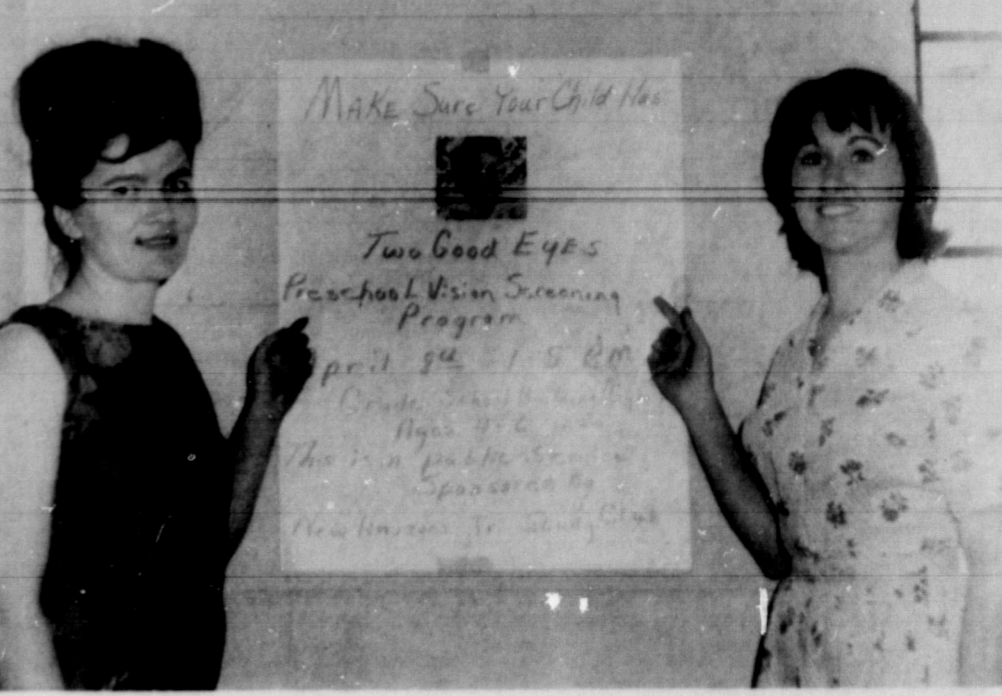 Make Sure Your Child Has
Two Good Eyes
Preschool Vision Screening
Program
April 8th 1-5 P.M.
Grade School Building
Ages 4-6
This is a public service
Sponsored By
New Horizons Jr. Study Club